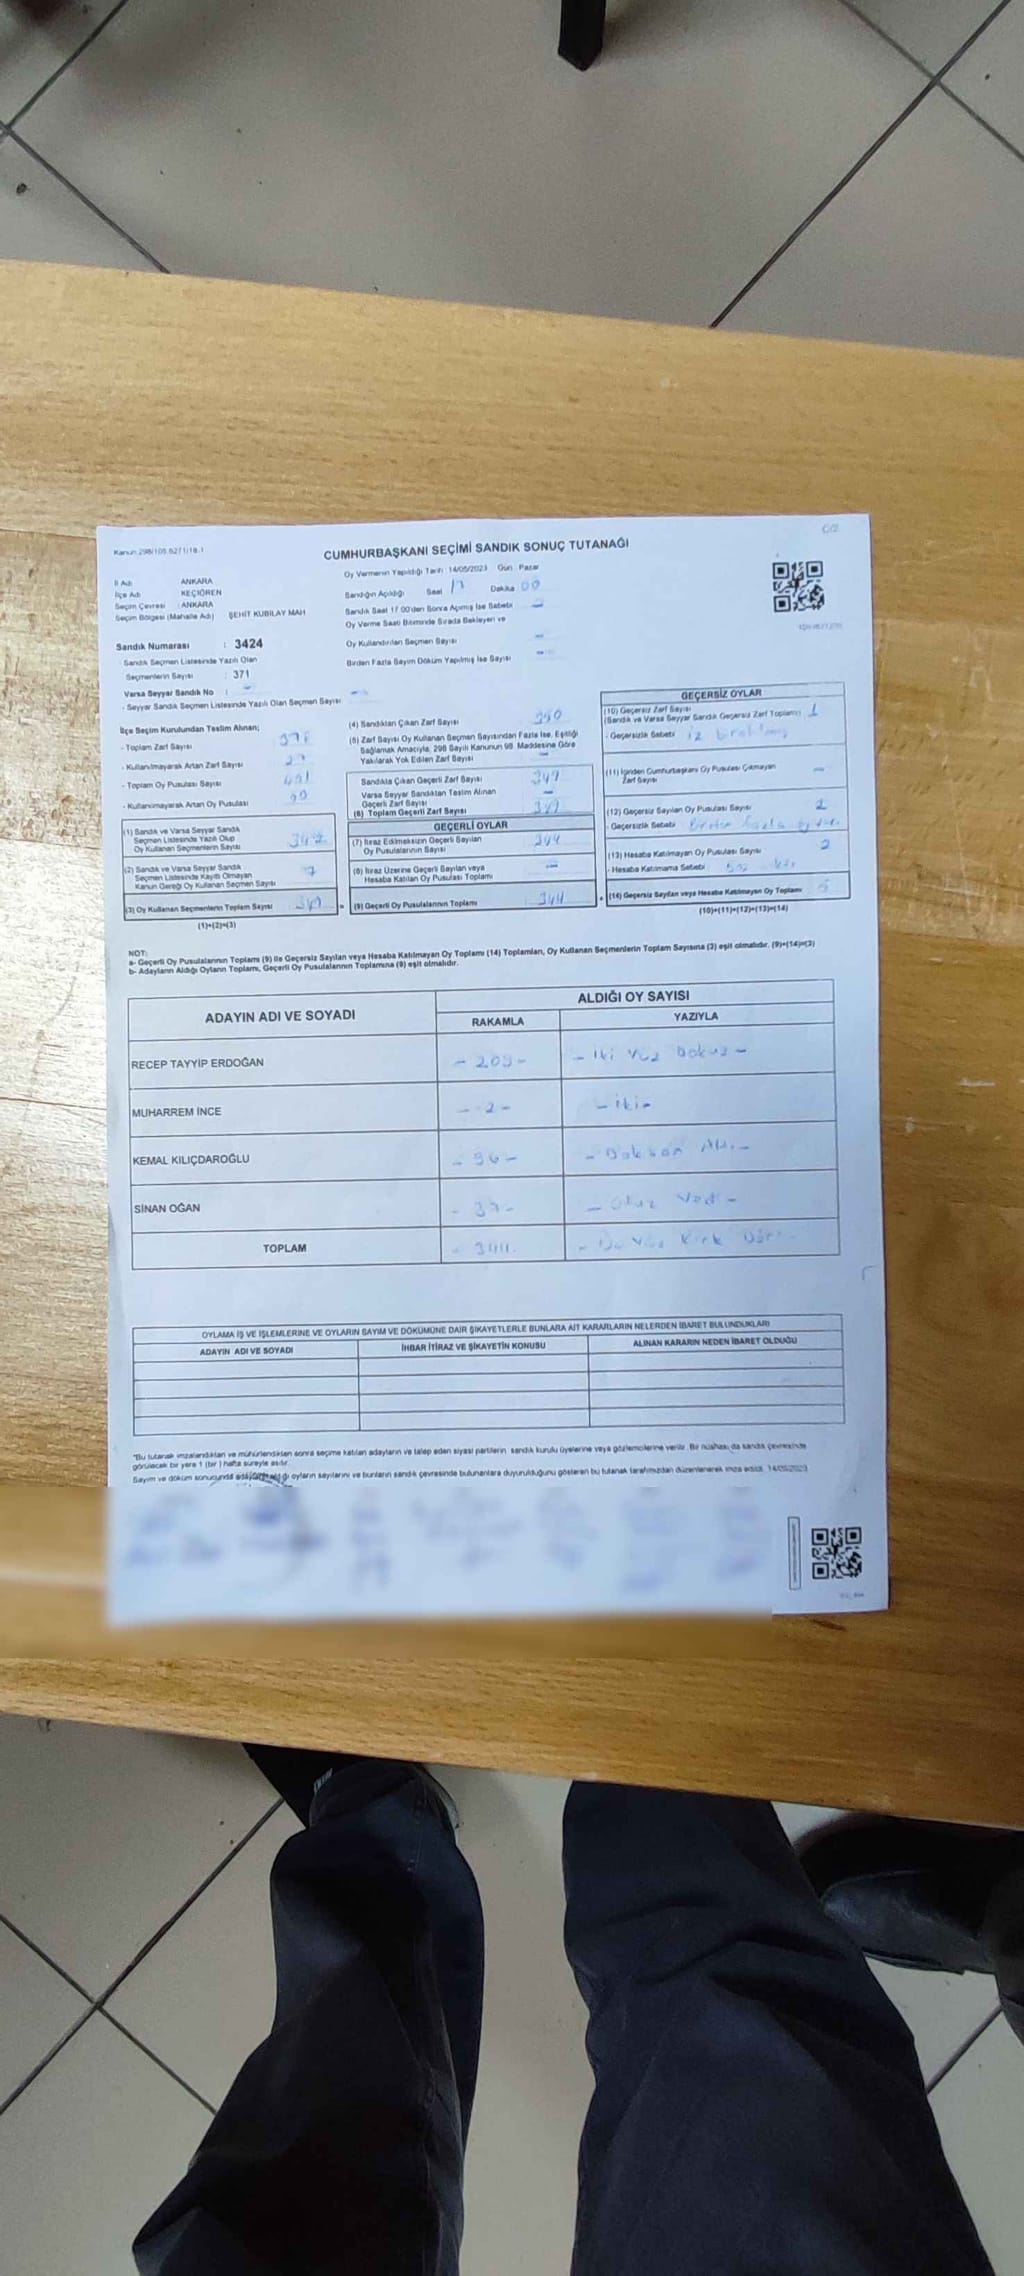 Kanun:298/105.6271/18-1
CUMHURBAŞKANI SEÇİMİ SANDIK SONUÇ TUTANAĞI
İl Adı ANKARA
İlçe Adı KEÇİÖREN
Seçim Çevresi : ANKARA
Seçim Bölgesi (Mahalle Adı) ŞEHİT KUBİLAY MAH
Oy Vermenin Yapıldığı Tarih 14/05/2023 Gün : Pazar
Sandığın Açıldığı Saat 17 Dakika 00
Sandık Saat 17:00'den Sonra Açımış İse Sebebi
Oy Verme Saati Bitiminde Sırada Bekleyen ve
Oy Kullandırılan Seçmen Sayısı
Birden Fazla Sayım Döküm Yapılmış İse Sayısı
Sandık Numarası : 3424
Sandık Seçmen Listesinde Yazılı Olan
Seçmenlerin Sayısı : 371
Varsa Seyyar Sandık No :
- Seyyar Sandık Seçmen Listesinde Yazılı Olan Seçmen Sayısı
İlçe Seçim Kurulundan Teslim Alınan;
- Toplam Zarf Sayısı
- Kullanılmayarak Artan Zarf Sayısı
- Toplam Oy Pusulası Sayısı
- Kullanılmayarak Artan Oy Pusulası
(1) Sandık ve Varsa Seyyar Sandık
Seçmen Listesinde Yazılı Olup
Oy Kullanan Seçmenlerin Sayısı 342
(2) Sandık ve Varsa Seyyar Sandık
Seçmen Listesinde Kayıtlı Olmayan
Kanun Gereği Oy Kullanan Seçmen Sayısı 7
(3) Oy Kullanan Seçmenlerin Toplam Sayısı 349
(1)+(2)=(3)
(4) Sandıktan Çıkan Zarf Sayısı 350
(5) Zarf Sayısı Oy Kullanan Seçmen Sayısından Fazla İse, Eşitliği
Sağlamak Amacıyla, 298 Sayılı Kanunun 98. Maddesine Göre
Yakılarak Yok Edilen Zarf Sayısı
Sandıkta Çıkan Geçerli Zarf Sayısı 349
Varsa Seyyar Sandıktan Teslim Alınan
Geçerli Zarf Sayısı
(6) Toplam Geçerli Zarf Sayısı 349
GEÇERLİ OYLAR
(7) İtiraz Edilmeksizin Geçerli Sayılan
Oy Pusulalarının Sayısı 344
(8) İtiraz Üzerine Geçerli Sayılan veya
Hesaba Katılan Oy Pusulası Toplamı
(9) Geçerli Oy Pusulalarının Toplamı 344
GEÇERSİZ OYLAR
(10) Geçersiz Zarf Sayısı
(Sandık ve Varsa Seyyar Sandık Geçersiz Zarf Toplamı) 1
- Geçersizlik Sebebi
(11) İçinden Cumhurbaşkanı Oy Pusulası Çıkmayan
Zarf Sayısı
(12) Geçersiz Sayılan Oy Pusulası Sayısı 2
- Geçersizlik Sebebi Birden fazla
(13) Hesaba Katılmayan Oy Pusulası Sayısı 2
- Hesaba Katılmama Sebebi
(14) Geçersiz Sayılan veya Hesaba Katılmayan Oy Toplamı 5
(10)+(11)+(12)+(13)=(14)
NOT:
a- Geçerli Oy Pusulalarının Toplamı (9) ile Geçersiz Sayılan veya Hesaba Katılmayan Oy Toplamı (14) Toplamları, Oy Kullanan Seçmenlerin Toplam Sayısına (3) eşit olmalıdır. (9)+(14)=(3)
b- Adayların Aldığı Oyların Toplamı, Geçerli Oy Pusulalarının Toplamına (9) eşit olmalıdır.
ADAYIN ADI VE SOYADI ALDIĞI OY SAYISI
RAKAMLA YAZIYLA
RECEP TAYYİP ERDOĞAN - 209 - - iki yüz Dokuz -
MUHARREM İNCE - 2 - - iki -
KEMAL KILIÇDAROĞLU - 96 - - Doksan Altı -
SİNAN OĞAN - 37 - - Otuz Yedi -
TOPLAM - 344 - Kırk
OYLAMA İŞ VE İŞLEMLERİNE VE OYLARIN SAYIM VE DÖKÜMÜNE DAİR ŞİKAYETLERLE BUNLARA AİT KARARLARIN NELERDEN İBARET BULUNDUKLARI
ADAYIN ADI VE SOYADI İHBAR İTİRAZ VE ŞİKAYETİN KONUSU ALINAN KARARIN NEDEN İBARET OLDUĞU
*Bu tutanak imzalandıktan ve mühürlendikten sonra seçime katılan adayların ve talep eden siyasi partilerin sandık kurulu üyelerine veya gözlemcilerine verilir. Bir nüshası da sandık çevresinde
görülecek bir yere 1 (bir) hafta süreyle asılır.
Sayım ve döküm sonucunda adayların aldığı oyların sayılarını ve bunların sandık çevresinde bulunanlara duyurulduğunu gösteren bu tutanak tarafımızdan düzenlenerek imza edildi. 14/05/2023